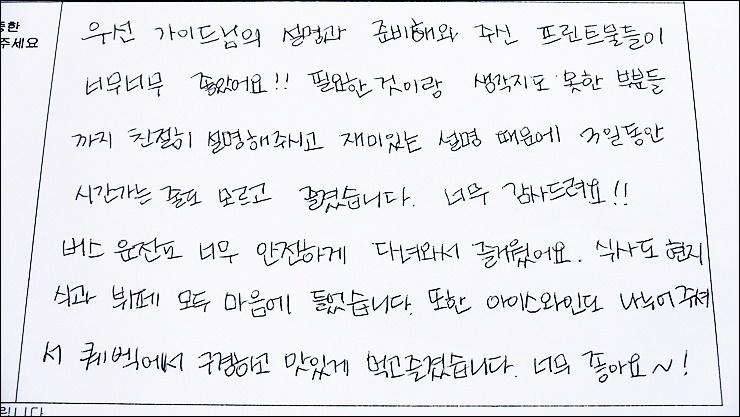 중한
주세요
우선 가이드님의 설명과 준비해와 주신 프린트물들이
너무너무 좋았어요!! 필요한것이랑 생각지도 못한 부분들
까지 친절히 설명해주시고 재미있는 설명 때문에 3일동안
시간가는 줄도 모르고 즐겼습니다. 너무 감사드려요!!
버스 운전도 너무 안전하게 다녀와서 즐거웠어요. 식사도 현지
식과 뷔페 모두 마음에 들었습니다. 또한 아이스와인도 나눠어주셔
서 퀘벡에서 구경하고 맛있게 먹고즐겼습니다. 너무 좋아요~!
립니다